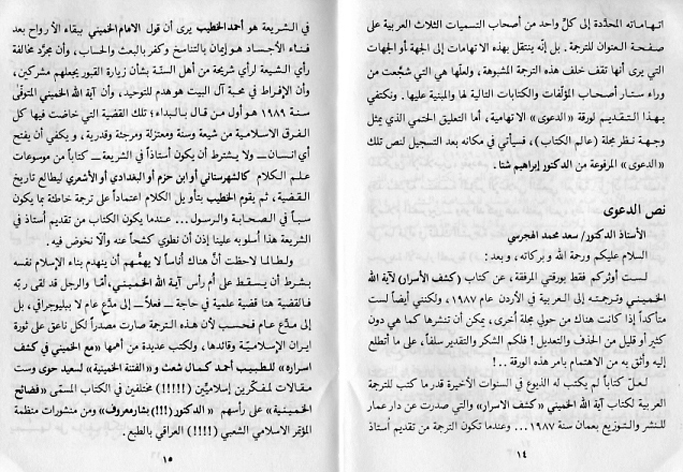 اتهاماته المحدّدة إلى كلّ واحد من أصحاب التسميات الثلاث العربية على
صفحة العنوان للترجمة. بل إنّه ينتقل بهذه الاتهامات إلى الجهة أو الجهات
التي يرى أنها تقف خلف هذه الترجمة المشبوهة، ولعلّها هي التي شجّعت من
وراء ستار أصحاب المؤلّفات والكتابات التالية لها والمبنية عليها. ونكتفي
بهذا التقديم لورقة «الدعوى» الاتهامية، أما التعليق الختمي الذي يمثل
وجهة نظر مجلة (عالم الكتاب)، فسيأتي في مكانه بعد التسجيل لنص تلك
«الدعوى» المرفوعة من الدكتور إبراهيم شتا.
نص الدعوى
الأستاذ الدكتور/ سعد محمد الهجرسي
السلام عليكم ورحمة الله وبركاته، وبعد:
لست أوثركم فقط بورقتي المرفقة، عن كتاب (كشف الأسرار) لآية الله
الخميني وترجمته إلى العربية في الأردن عام ١٩٨٧، ولكنني أيضاً لست
متأكداً إذا كانت هناك من حولي مجلة أخرى، يمكن أن تنشرها كما هي دون
كثير أو قليل من الحذف والتعديل! فلكم الشكر والتقدير سلفاً، على ما أتطلع
إليه وأثق به من الاهتمام بامر هذه الورقة ..!
لعلّ كتاباً لم يكتب له الذيوع في السنوات الأخيرة قدر ما كتب للترجمة
العربية لكتاب آية الله الخميني «كشف الاسرار» والتي صدرت عن دار عمار
للنشر والتوزيع بعمان سنة ١٩٨٧... وعندما تكون الترجمة من تقديم أُستاذ
١٤
في الشريعة هو أحمد الخطيب يرى أن قول الامام الخميني ببقاء الأرواح بعد
فناء الأجساد هو إيمان بالتناسخ وكفر بالبعث والحساب، وأن مجرّد مخالفة
رأي الشيعة لرأي شريحة من أهل السنّة بشأن زيارة القبور يجعلهم مشركين،
وأن الإفراط في محبة آل البيت هو هدم للتوحيد، وأن آية الله الخميني المتوفّى
سنة ١٩٨٩ هو أول من قال بالبداء؛ تلك القضية التي خاضت فيها كل
الفرق الاسلامية من شيعة وسنة ومعتزلة ومرجئة وقدرية، ويكفي أن يفتح
أي انسان ـ ولا يشترط أن يكون أستاذاً في الشريعة ـ كتاباً من موسوعات
علم الكلام كالشهرستاني أو ابن حزم أو البغدادي أو الأشعري ليطالع تاريخ
القضية، ثم يقوم الخطيب بتأويل الكلام اعتماداً على ترجمة خاطئة بما يكون
سباً في الصحابة والرسول... عندما يكون الكتاب من تقديم أُستاذ في
الشريعة هذا أسلوبه علينا إذن أن نطوي كشحاً عنه وألّا نخوض فيه.
ولطالما لاحظت أنّ هناك أناساً لا يهمّهم أن ينهدم بناء الإسلام نفسه
بشرط أن يسقط على أم رأس آية الله الخميني، أمّا والرجل قد لقى ربّه
فالقضية هنا قضية علمية في حاجة ـ فعلاً ـ إلى مدّعٍ عام لا ببليوجرافي، بل
إلى مدّعٍ عام فحسب لأن هذه الترجمة صارت مصدراً لكل ناعق على ثورة
ايران الإسلاميّة وقائدها، ولكتب عديدة من أهمها «مع الخميني في كشف
اسراره» للطبيب أحمد كمال شعث و«الفتنة الخمينية» لسعيد حوى وست
مقالات لمفكّرين إسلاميّين (!!!!!) مختلفين في الكتاب المسمّى «فضائح
الخمينية» على رأسهم «الدكتور (!!!) بشار معروف» ومن منشورات منظمة
المؤتمر الاسلامي الشعبي (!!!!) العراقي بالطبع.
١٥